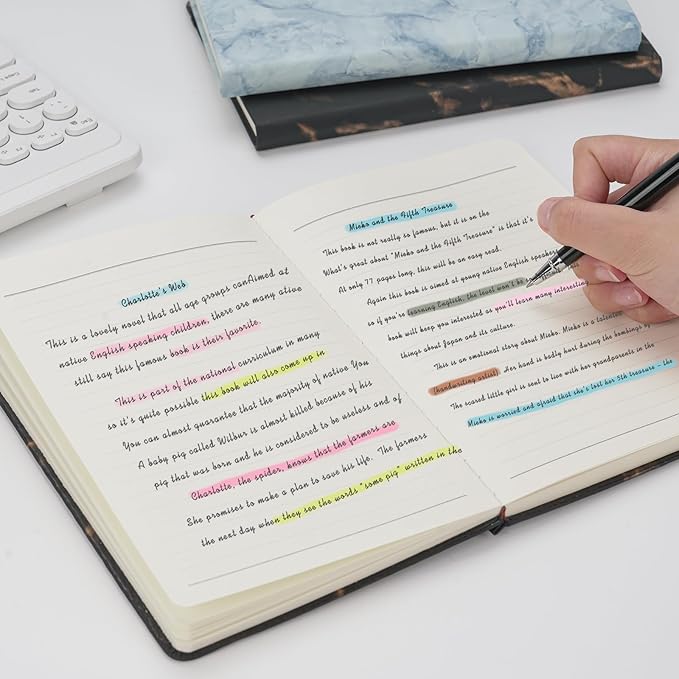 Charlotte's Web
This is a lovely novel that all age groups canAimed at
native English speaking children, there are many ative
still say this famous book is their favorite.
This is part of the national curriculum in many
so it's quite possible this book will also come up in
You can almost guarantee that the majority of native You
A baby pig called Wilbur is almost killed because of his
pig that was born and he is considered to be useless and of
Charlotte, the spider, knows that the farmers are
She promises to make a plan to save his life. The farmers
the next day when they see the words "some pig" written in the
Mieko and the Fifth Treasure
This book is not really so famous, but it is on the
What's great about "Mieko and the Fifth Treasure" is that it's
At only 77 pages long, this will be an easy read.
Again this book is aimed at young native English speake
so if you're learning English, the level won't be
book will keep you interested as you'll learn many interesting
things about Japan and its culture.
This is an emotional story about Mieko. Mieko is a talente
(handwriting artist) Her hand is badly hurt during the bombings of
The scared little girl is sent to live with her grandparents in the
Mieko is worried and afraid that she's lost her 5th treasure - the
Tab
Caps
Esc